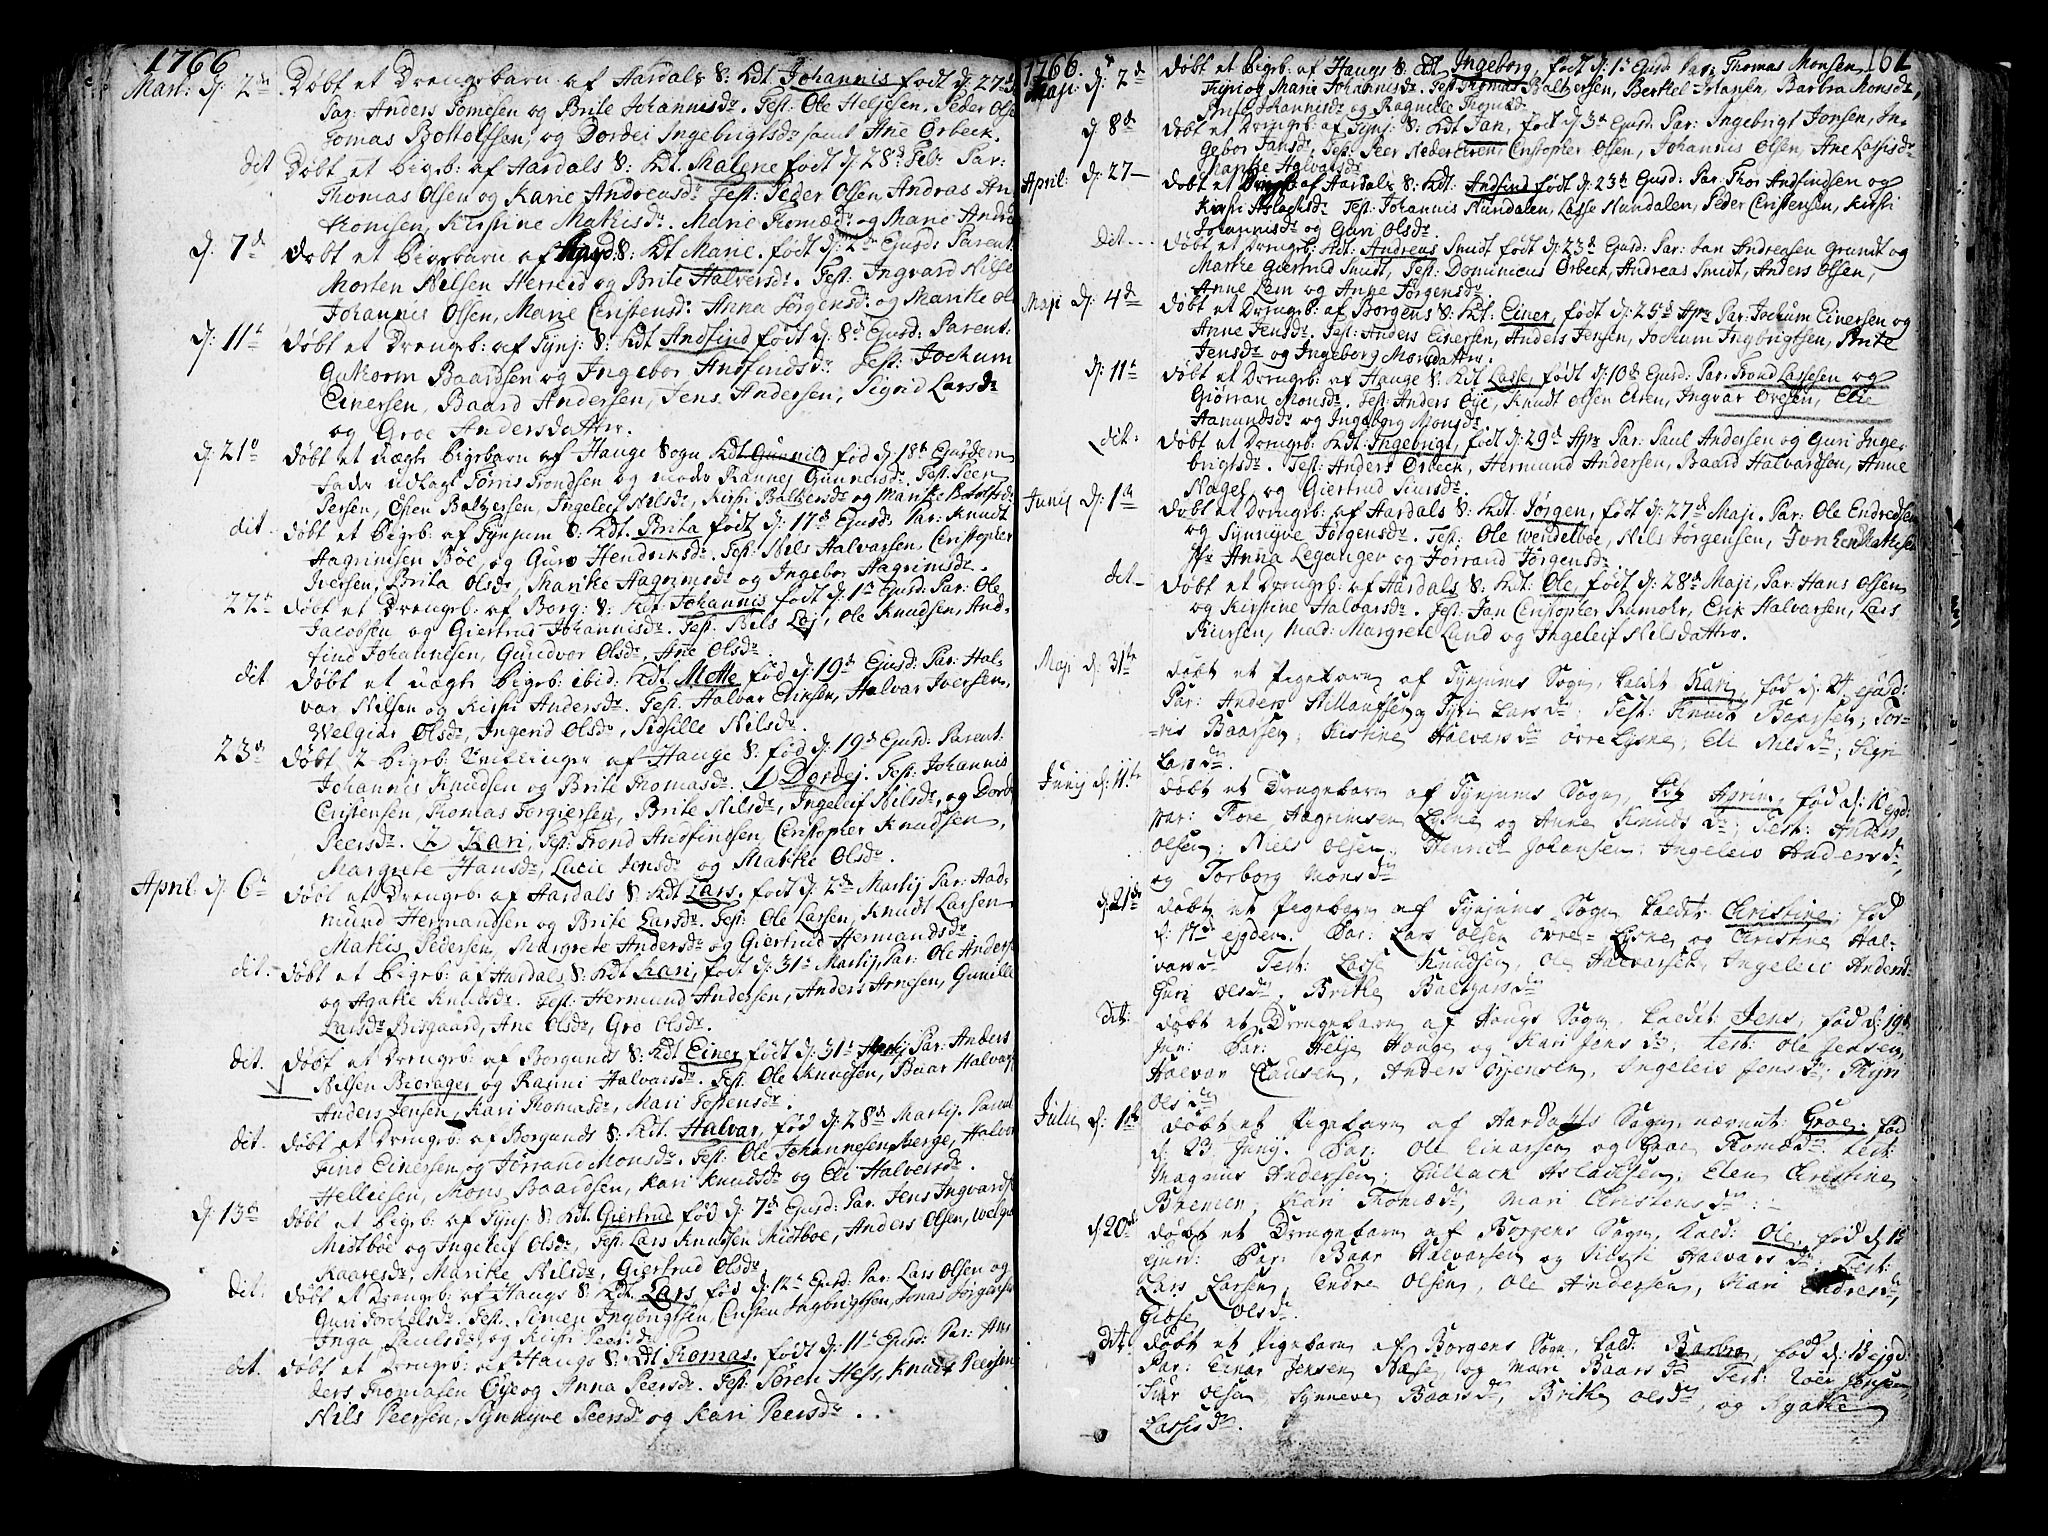 1766
Mart: d: 2de Døbt et Drengebarn af Aardals S: Kdt Johannis født d: 27de
Par: Anders Tomesen og Brite Johannisdr. Test: Ole Helgesen, Peder Olse
Tomas Bottolfsen, og Dordei Ingebrigtsdr samt Ane Orbeck.
det Døbt et Pigeb: af Aardals S: Kdt. Malene født d: 28de Feb: Par:
Thomas Olsen og Karie Andreasdr Test: Peder Olsen, Andras An
tonisen, Kirstine Mathisdr. Marie Thomædr og Marie Andre
d: 7de Døbt et Pigebarn af S: Kdt Marie. født d: 2de Ejusd: Parent:
Morten Nilsen Herreid og Brite Halversdr. Test: Ingvard Nilse
Johannis Olsen, Marie Cristensdr. Anna Jørgensdr og Marike Ol
d: 11te døbt et Drengeb: af Tynj: S: Kdt Andfind født d: 8de Ejusd: Parent:
Guttorm Baardsen og Ingebor Andfindsdr. Test: Jochum
Einersen, Baard Andersen, Jens Andersen, Sigrid Larsdr
og Groe Andersdatter.
d: 21de døbt et uægte Pigebarn af Hauge Sogn Kdt Gunnild fød d: 18de Ejusdem
Fader udlagt Torris Trondsen og moder Rannej Gunnersdr. Test: Peer
Persen, Esten Baltzersen, Ingeleif Nilsdr, Kirsti Baltzersdr og Marike Botolfsdr
dit døbt et Pigeb: af Tynjum S: Kdt. Brita født d: 17de Ejusd: Par: Knudt
Aagrimsen Bøe, og Guro Hendriksdr. Test: Nils Halvarsen, Cristopher
Iversen, Brita Olsdr, Marike Aagrimsdr og Ingebor Aagrimsdr.
22de døbt et Drengeb: af Borg: S: Kdt. Johannis født d: 1te Ejusd: Par: Ole
Jacobsen og Giertrud Johannisdr. Test: Nils Loj, Ole Knudsen, And-
find Johannesen, Gundvor Olsdr, Ane Olsdr.
dit døbt et uægte Pigeb: ibid. Kdt. Mette fød d: 19de Ejusd: Par: Hal-
var Nilsen og Kirsti Andersdr. Test: Halvar Eriksen, Halvar Iversen,
Welgiær Olsdr, Ingerid Olsdr, Sidsille Nilsdr.
23de døbt 2 Pigeb: Tvillinger af Hauge S: fød d: 19de Ejusd: Parent:
Johannis Knudsen og Brite Thomasdr. 1) Dordej. Test: Johannis
Cristensen, Thomas Torgiersen, Brite Nilsdr, Ingeleif Nilsdr, og Dord
Peersdr. 2) Kari, Test: Trond Andfindsen, Cristopher Knudsen,
Margrete Hansdr, Lucie Jensdr og Marike Olsdr.
April d: 6te døbt et Drengeb: af Aardals S: Kdt Lars, født d: 2de Martij Par: Aad-
mund Hermandsen og Brite Larsdr. Test: Ole Larsen, Knudt Larsen
Mathis Pedersen, Margrete Andersdr og Giertrud Hermandsdr.
dit. døbt et Pigeb: af Aardals S: Kdt Kari, født d: 31te Martij, Par: Ole Anderse
og Agathe Knudsdr. Test: Hermund Andersen, Anders Arnesen, Gunille
Larsdr Bisgaard, Ane Olsdr, Gro Olsdr.
dit. døbt et Drengeb: af Borgunds S: Kdt Einer født d: 31te Martij Par: Anders
Nilsen Biorager og Ranni Halvarsdr. Test: Ole Knudsen, Beiar Halvars
Anders Jensen, Kari Thomasdr, Mari Tostensdr.
dit. døbt et Drengeb: af Borgunds S: Kdt. Halvar, fød d: 28de Martij. Parent
Find Einersen og Torrand Monsdr. Test: Ole Johannesen Berge, Halvor
Hellicsen, Mons Baardsen, Kari Knudsdr og Eli Halversdr.
d: 13de døbt et Pigeb: af Tynj: S: Kdt. Giertrud fød d: 7de Ejusd: Par. Jens Ingvards
Mistbøe og Ingeleif Olsdr, Test: Lars Knudsen Mistboe, Anders Olsen, Welgiær
Kaaresdr, Marike Nilsdr, Giertrud Olsdr.
dit. døbt et Drengeb: af Haugs S: Kdt. Lars fød d: 12te Ejusd: Par: Lars Olsen og
Guri Torkelsdr. Test: Simen Ingbrigtsen, Cristen Ingbrigtsen, Jonas Jørgense
Inga Paulsdr, og Kirsti Peersdr.
det døbt et Drengeb: af Haugs S: Kdt Thomas, født d: 11te Ejusd: Par: An-
ders Thomasen Øye og Anna Peersdr. Test: Søren Hess, Knudt Peersen
Nils Peersen, Synnyve Peersdr og Kari Peersdr.
1766. 161
Maji d: 2de døbt et Pigeb: af Haugs S: Kdt Ingeborg, født d: 1te Ejusd: Par: Thomas Monsen
Marie Johannisdr. Test: Thomas Baltzersen, Berthel Hansen, Barbra Monsdr,
Brite Johannisdr og Ragnille Thomædr.
d: 8de døbt et Drengeb: af Tynj: S: Kdt Jan, født d: 3de Ejusd. Par: Ingebrigt Jonsen, In-
gebor Jansdr. Test: Peer Neder Eren, Cristopher Olsen, Johannis Olsen, Ane Lassisdr
Marthe Halvarsdr.
April: d: 27 døbt et Drengeb: af Aardals S: Kdt: Andfind født d: 23de Ejusd: Par: Thor Andfindsen og
Kirsti Aslachsdr Test: Johannis Nundalen, Lasse Nundalen, Peder Cristensen, Kirsti
Johannisdr og Guri Olsdr.
Dit døbt et Drengeb: Kdt: Andreas Smidt født d: 23de Ejusd: Par: Jan Andreasen Grundt og
Marthe Giertrud Smidt, Test: Dominicus Orbeck, Andreas Smidt, Anders Olsen,
Anne Lem og Ange Jørgensdr.
Maji d: 4de døbt et Drengeb: af Borgens S: Kdt: Einer, født d: 25de Apr: Par: Jochum Einersen og
Anne Jensdr. Test: Anders Einersen, Anders Jensen, Jochum Ingbrigtsen, Brite
Jensdr og Ingeborg Monsdatter.
d: 11te døbt et Drengeb: af Hauge S: Kdt Lasse født d: 10de Ejusd: Par: Trond Lassesen og
Giøran Monsdr. Test: Anders Øye, Knudt Olsen Eren, Ingvar Ovesen, Elie
Aamundsdr og Ingeborg Monsdr.
dit: døbt et Drengeb: Kdt: Ingebrigt, født d: 29de Apr: Par: Paul Andersen og Guri Inge-
brigtsdr. Test: Anders Orbeck, Hermund Andersen, Baard Halvardsen, Anne
Nagel og Giertrud Siursdr.
Junij d: 1te døbt et Drengeb: af Aardals S: Kdt: Jørgen, født d: 27de Maji. Par: Ole Endredsen
og Synnyve Jørgensdr. Test: Ole Wendelboe, Nils Jørgensen, Jonken Mathisen
Jfr Anna Leganger og Torrand Jørgensdr.
det døbt et Drengeb: af Aardals S: Kdt: Ole, født d: 28de Maji, Par: Hans Olsen
og Kirstine Halvarsdr. Test: Jan Cristopher Rumohr, Erik Halvarsen, Lars
Siursen, Mad: Margrete Lund og Ingeleif Nilsdatter.
Maji d: 31te døbt et Pigebarn af Tynjums Sogn, kaldet Kari, fød d: 24 ejusd:
Par: Anders Nillausen og Tyri Larsdr; Test: Knud Baarsen; Tor-
nis Baarsen; Kistine Halvarsdr Øvre Lysne; Eli Nilsdr; Sigri
Larsdr.
Junij d: 11te døbt et Drengebarn af Tynjums Sogn, Agrim, fød d: 10 ejusd:
par: Tore Hagrimsen Lysne og Anne Knudsdr; Test: Anders
Olsen; Niels Olsen; Johansen; Ingeleiv Andersdr,
og Torborg Monsdr
d: 21de døbt et Pigebarn af Tynjums Sogn kaldet Christine; fød
d: 17de ejusdem. Par: Lars Olsen Øvre-Lysne og Christine Hal-
varsdr Test: Lasse Knudsen, Ole Halvarsen, Ingeleiv Andersdr
Guri Olsdr, Brithe Baltzarsdr
dit: døbt et Drengebarn af Haugs Sogn, kaldet Jens, fød d: 19de
Jun: Par: Helje Hauge og Kari Jensdr; test: Ole Jensen,
Halvar Clausen, Anders Jensen, Ingeleiv Jensdr; Thyri
Olsdr
Julij d: 1te døbt et Pigebarn af Aardahls Sogn nævnet: Groe, fød
d: 23 Junij. Par: Ole Einarsen og Groe Thomædr. test:
Magnus Andersen; Gullack Aslachsen; Elen Christine
Bremer; Kari Thomædr; Mari Christensdr:
d 20de døbt et Drengebarn af Borgens Sogn, kald: Ole, fød d 12
ejusd: Par: Baar Halvarsen og Halvarsdr; Test:
Lars Larsen, Endre Olsen, Ole Andersen, Kari Endresdr,
Olsdr.
Dit døbt et Pigebarn af Borgens Sogn, kald: Barbro, fød d: 13 ejusd.
Par: Einar Jensen Næse, og Mari Baarsdr Test: Jensen
Siur Olsen, Synneve Baarsdr, Brithe Olsdr, og Agathe
Lassisdr.